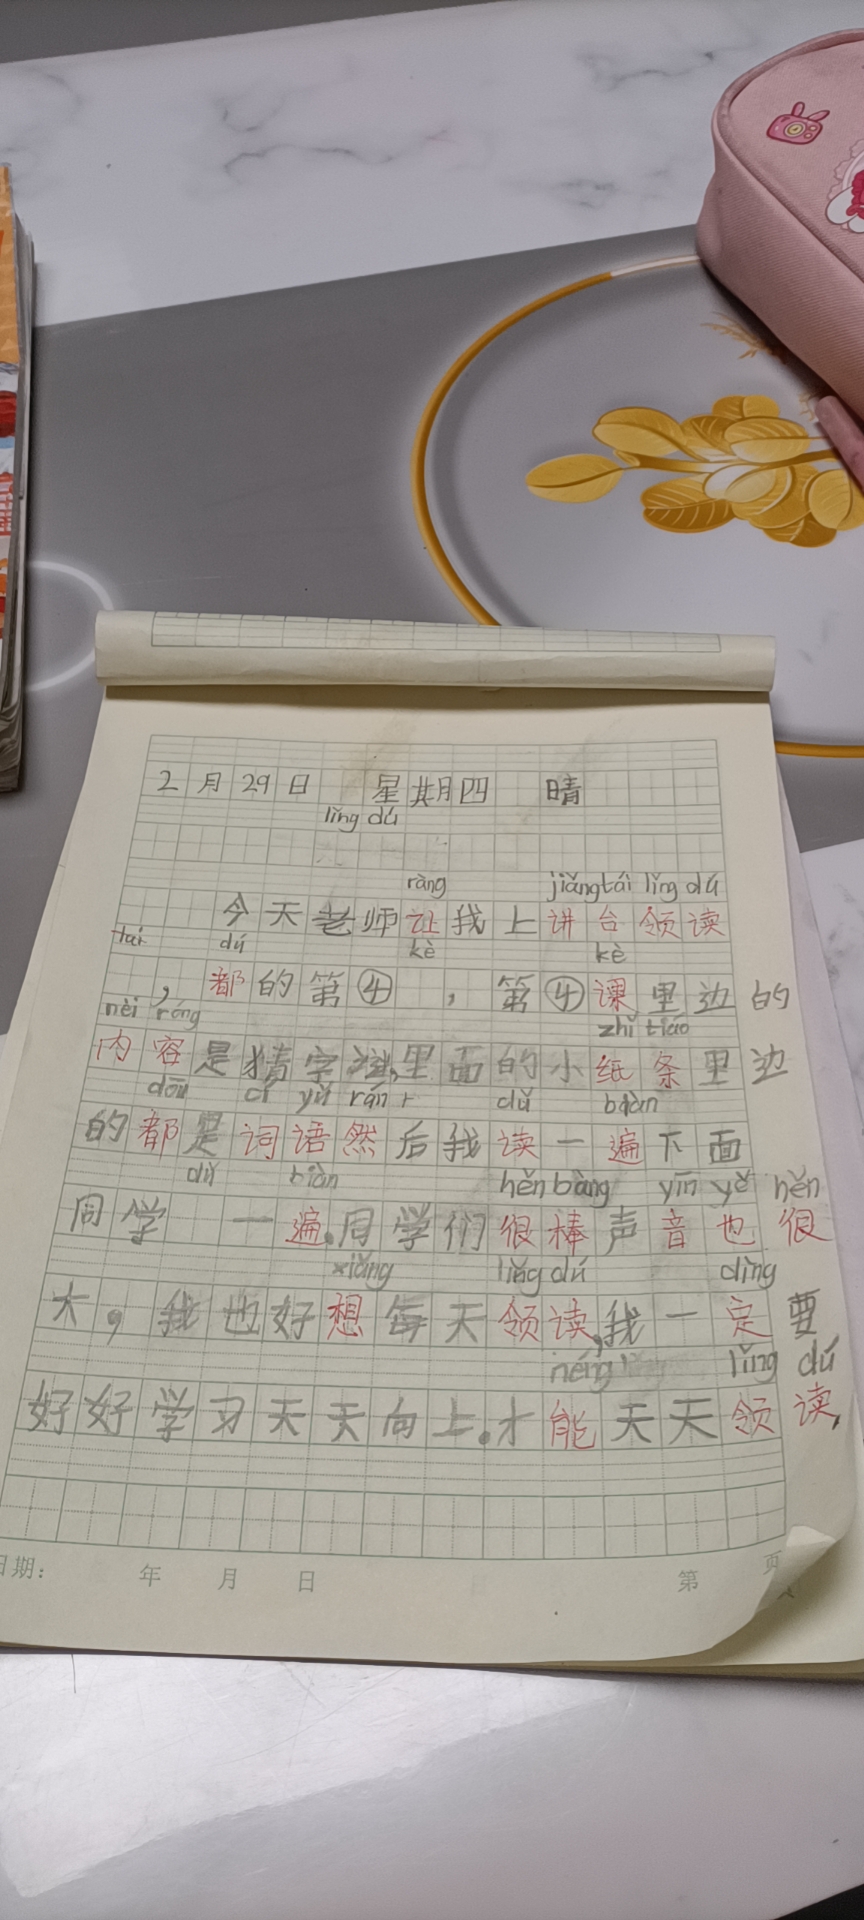 2月29日 星期四 晴
lǐng dú
ràng jiǎng tái lǐng dú
今天老师让我上讲台领读
tái dú kè kè
，都的第④，第④课里边的
nèi róng zhǐ tiáo
内容是猜字谜,里面的小纸条里边
dōu cí yǔ rán dú biàn
的都是词语然后我读一遍下面
dú biàn hěn bàng yīn yě hěn
同学 一遍。同学们很棒声音也很
xiǎng lǐng dú dìng
大，我也好想每天领读,我一定要
néng lǐng dú
好好学习天天向上。才能天天领读,
日期： 年 月 日 第 页